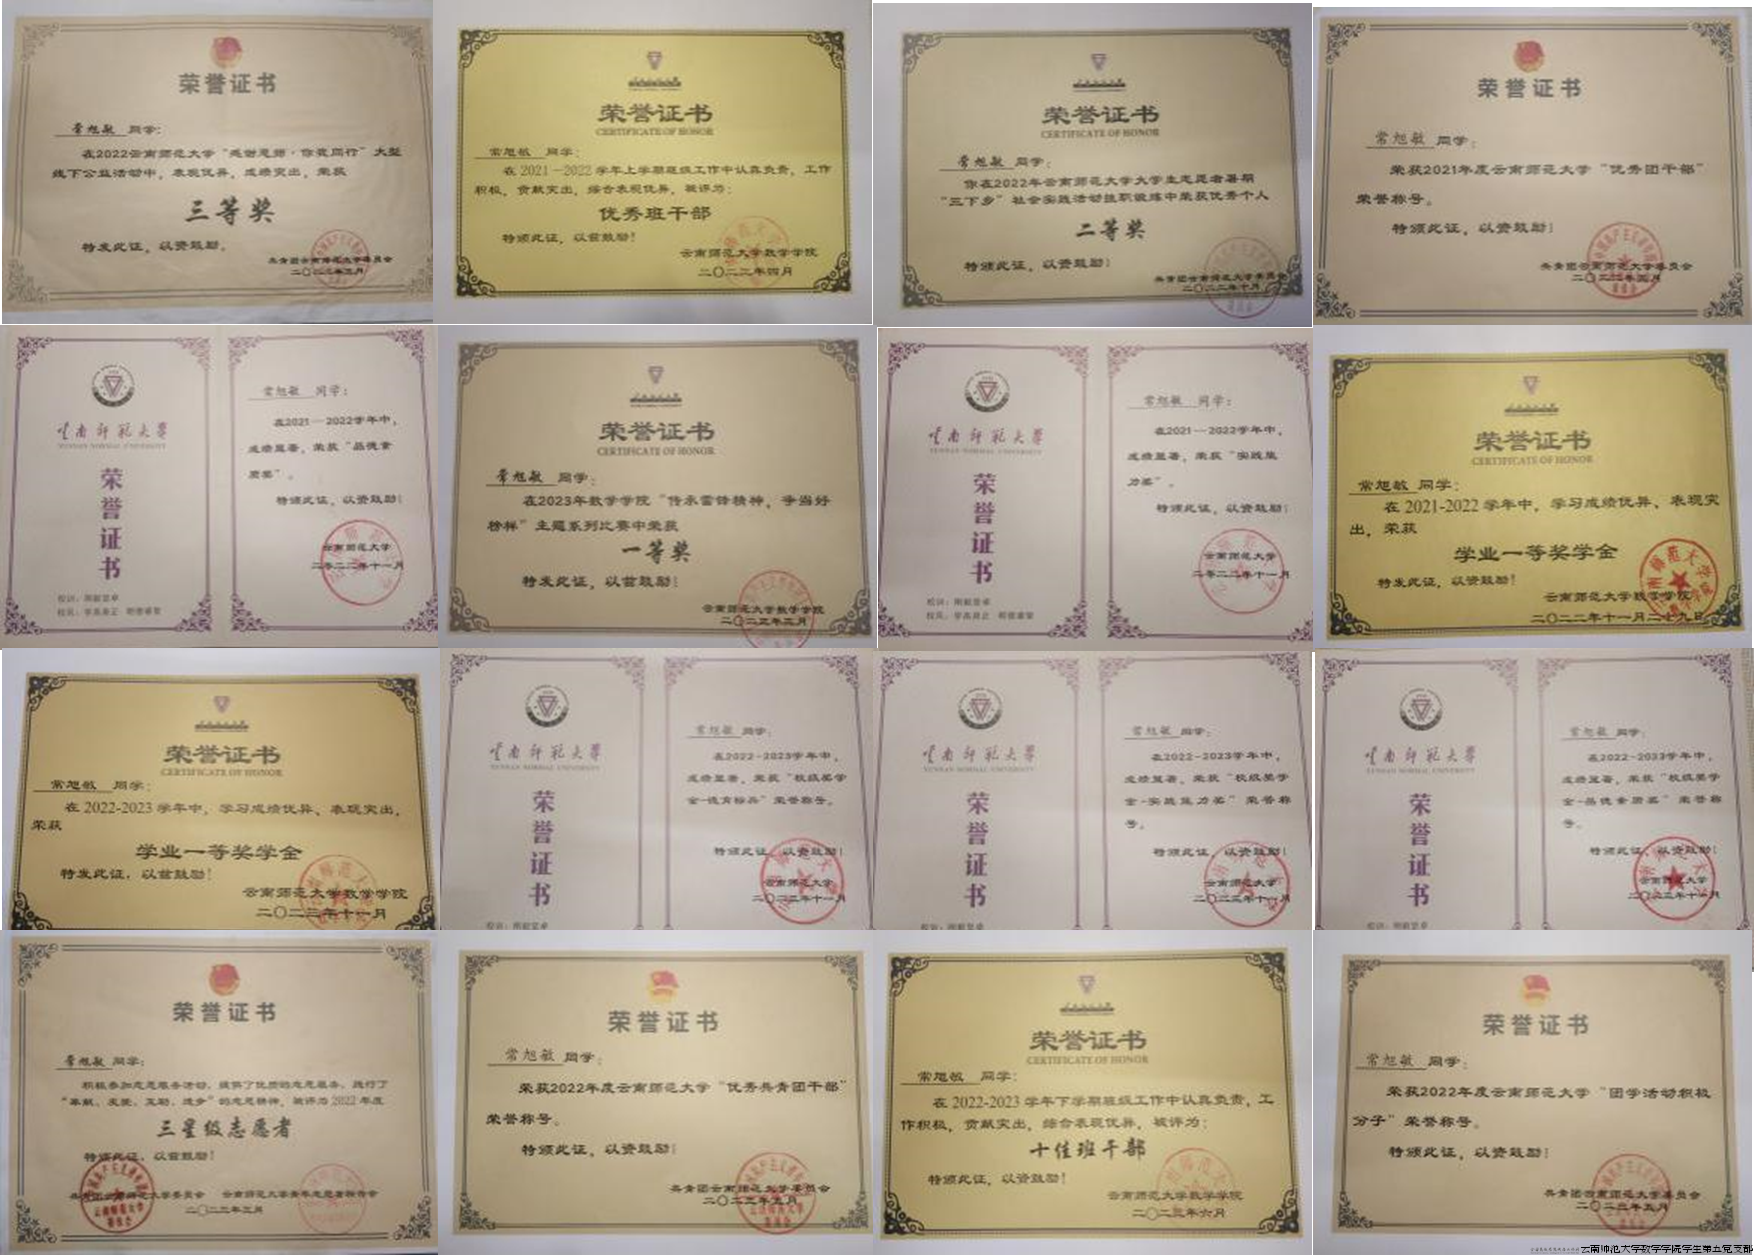 荣誉证书
常旭敏 同学:
在2022云南师范大学“感谢恩师·你我同行”大型
线下公益活动中，表现优异，成绩突出，荣获
三等奖
特发此证，以资鼓励。
共青团云南师范大学委员会
荣誉证书
CERTIFICATE OF HONOR
常旭敏 同学:
在2021-2022学年上学期班级工作中认真负责，工作
积极，贡献突出，综合表现优异，被评为:
优秀班干部
特颁此证，以兹鼓励!
云南师范大学数学学院
二〇二二年四月
荣誉证书
CERTIFICATE OF HONOR
常旭敏 同学:
你在2022年云南师范大学大学生志愿者暑期
“三下乡”社会实践活动挂职锻炼中荣获优秀个人
二等奖
特颁此证，以资鼓励!
共青团云南师范大学委员会
二〇二二年十月
荣誉证书
常旭敏 同学:
荣获2021年度云南师范大学“优秀团干部”
荣誉称号。
特颁此证，以资鼓励!
共青团云南师范大学委员会
二〇二二年五月
云南师范大学
YUNNAN NORMAL UNIVERSITY
荣誉证书
校训：刚毅坚卓
校风：学高身正 明德睿智
常旭敏 同学:
在2021—2022学年中，
成绩显著，荣获“品德素
质奖”。
特颁此证，以资鼓励!
云南师范大学
二零二二年十一月
荣誉证书
CERTIFICATE OF HONOR
常旭敏 同学:
在2023年数学学院“传承雷锋精神，争当好
榜样”主题系列比赛中荣获
一等奖
特发此证，以兹鼓励!
云南师范大学数学学院
二〇二三年三月
云南师范大学
YUNNAN NORMAL UNIVERSITY
荣誉证书
校训：刚毅坚卓
校风：学高身正 明德睿智
常旭敏 同学:
在2021—2022学年中，
成绩显著，荣获“实践能
力奖”。
特颁此证，以资鼓励!
云南师范大学
二零二二年十一月
荣誉证书
CERTIFICATE OF HONOR
常旭敏 同学:
在 2021-2022 学年中，学习成绩优异、表现突
出，荣获
学业一等奖学金
特发此证，以资鼓励!
云南师范大学数学学院
二〇二二年十一月二十九日
荣誉证书
CERTIFICATE OF HONOR
常旭敏 同学:
在 2022-2023 学年中，学习成绩优异、表现突出，
荣获
学业一等奖学金
特发此证，以兹鼓励!
云南师范大学数学学院
二〇二三年十一月
云南师范大学
YUNNAN NORMAL UNIVERSITY
荣誉证书
校训：刚毅坚卓
常旭敏 同学:
在2022-2023学年中，
成绩显著，荣获“校级奖学
金-德育标兵”荣誉称号。
特颁此证，以资鼓励!
云南师范大学
二〇二三年十一月
云南师范大学
YUNNAN NORMAL UNIVERSITY
荣誉证书
校训：刚毅坚卓
常旭敏 同学:
在2022-2023学年中，
成绩显著，荣获“校级奖学
金-实践能力奖”荣誉称
号。
特颁此证，以资鼓励!
云南师范大学
二〇二三年十一月
云南师范大学
YUNNAN NORMAL UNIVERSITY
荣誉证书
校训：刚毅坚卓
常旭敏 同学:
在2022-2023学年中，
成绩显著，荣获“校级奖学
金-品德素质奖”荣誉称
号。
特颁此证，以资鼓励!
云南师范大学
二〇二三年十一月
荣誉证书
常旭敏 同学:
积极参加志愿服务活动，提供了优质的志愿服务，践行了
“奉献、友爱、互助、进步”的志愿精神，被评为2022年度
三星级志愿者
特颁此证，以兹鼓励!
共青团云南师范大学委员会 云南师范大学青年志愿者协会
二〇二三年三月
荣誉证书
常旭敏 同学:
荣获2022年度云南师范大学“优秀共青团干部”
荣誉称号。
特颁此证，以资鼓励!
共青团云南师范大学委员会
二〇二三年五月
荣誉证书
CERTIFICATE OF HONOR
常旭敏 同学:
在 2022-2023 学年下学期班级工作中认真负责，工
作积极，贡献突出，综合表现优异，被评为:
十佳班干部
特颁此证，以资鼓励!
云南师范大学数学学院
二〇二三年六月
荣誉证书
常旭敏 同学:
荣获2022年度云南师范大学“团学活动积极
分子”荣誉称号。
特颁此证，以资鼓励!
共青团云南师范大学委员会
二〇二三年五月
云南师范大学数学学院学生第五党支部